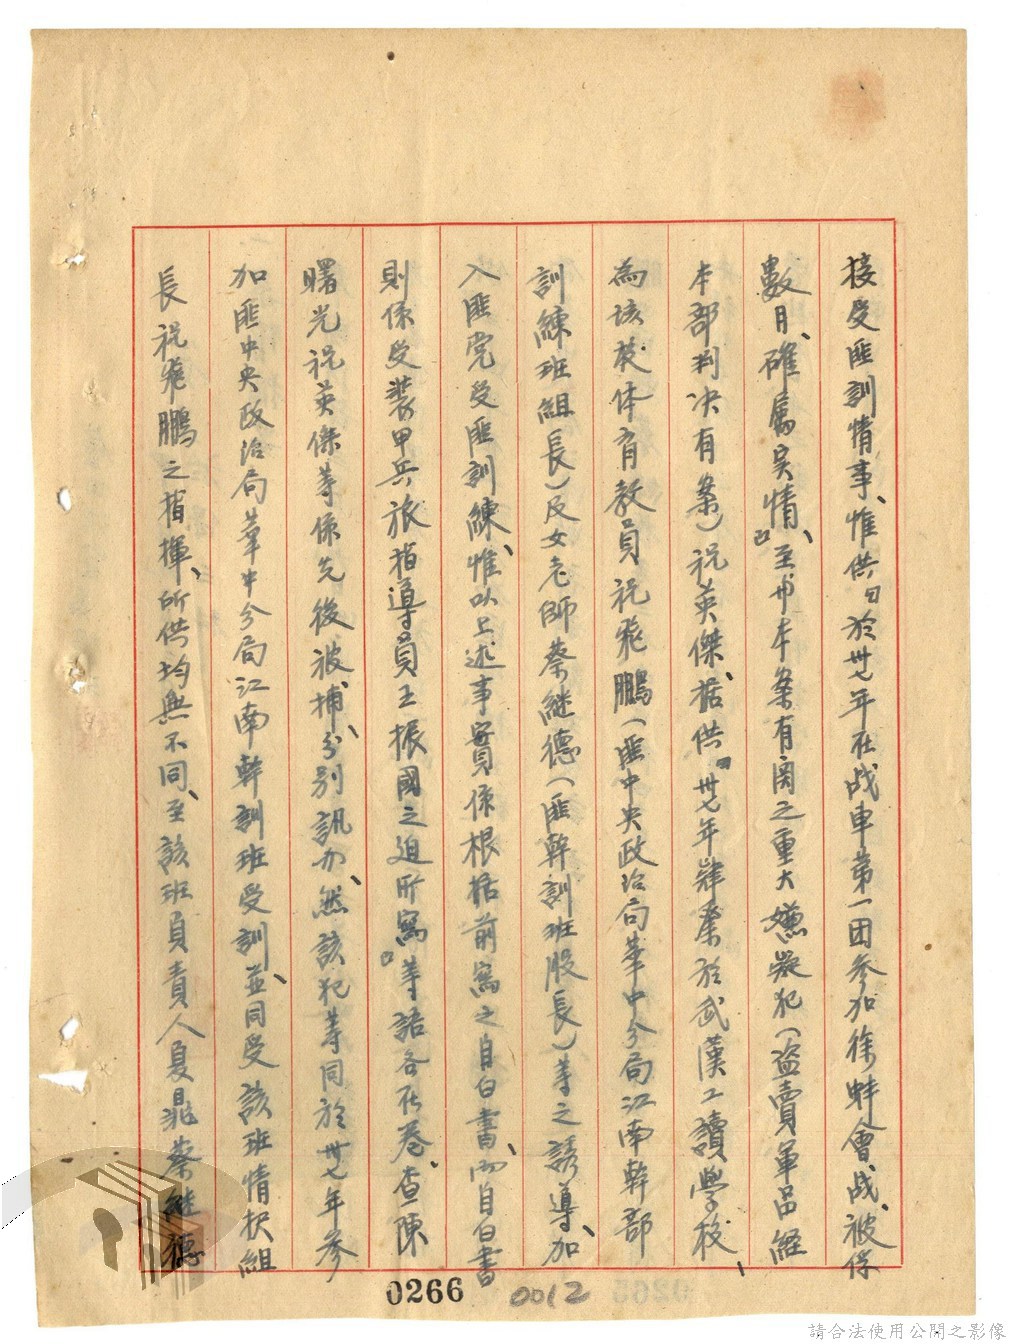 接受匪訓情事、惟供曰於卅七年在战車第一团参加徐蚌會战、被俘
數月、確屬吴情、』至本案有関之重大嫌疑犯(盗賣軍品経
本部判決有案)祝英傑、据供『卅七年肄業於武漢工讀学校、
為該校体育教員祝飛鵬(匪中央政治局華中分局江南幹部
訓練班組長)及女老師蔡継德(匪幹訓班股長)等之誘導、加
入匪党受匪訓練、惟以上述事實係根据前寫之自白書、而自白書
則係受装甲兵旅指導員王振國之迫所寫』等語各在卷、查陳
曙光祝英傑等係先後被捕、分别訊办、然該犯等同於卅七年參
加匪中央政治局華中分局江南幹訓班受訓、並同受該班情状組
長祝飛鵬之指揮、所供均無不同、至該班負責人夏蔡継德
0266 0012
請合法使用公開之影像